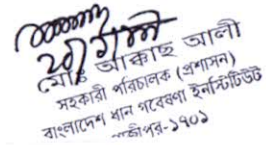 মোঃ আক্কাছ আলী
সহকারী পরিচালক (প্রশাসন)
বাংলাদেশ ধান গবেষণা ইনস্টিটিউট
গাজীপুর-১৭০১